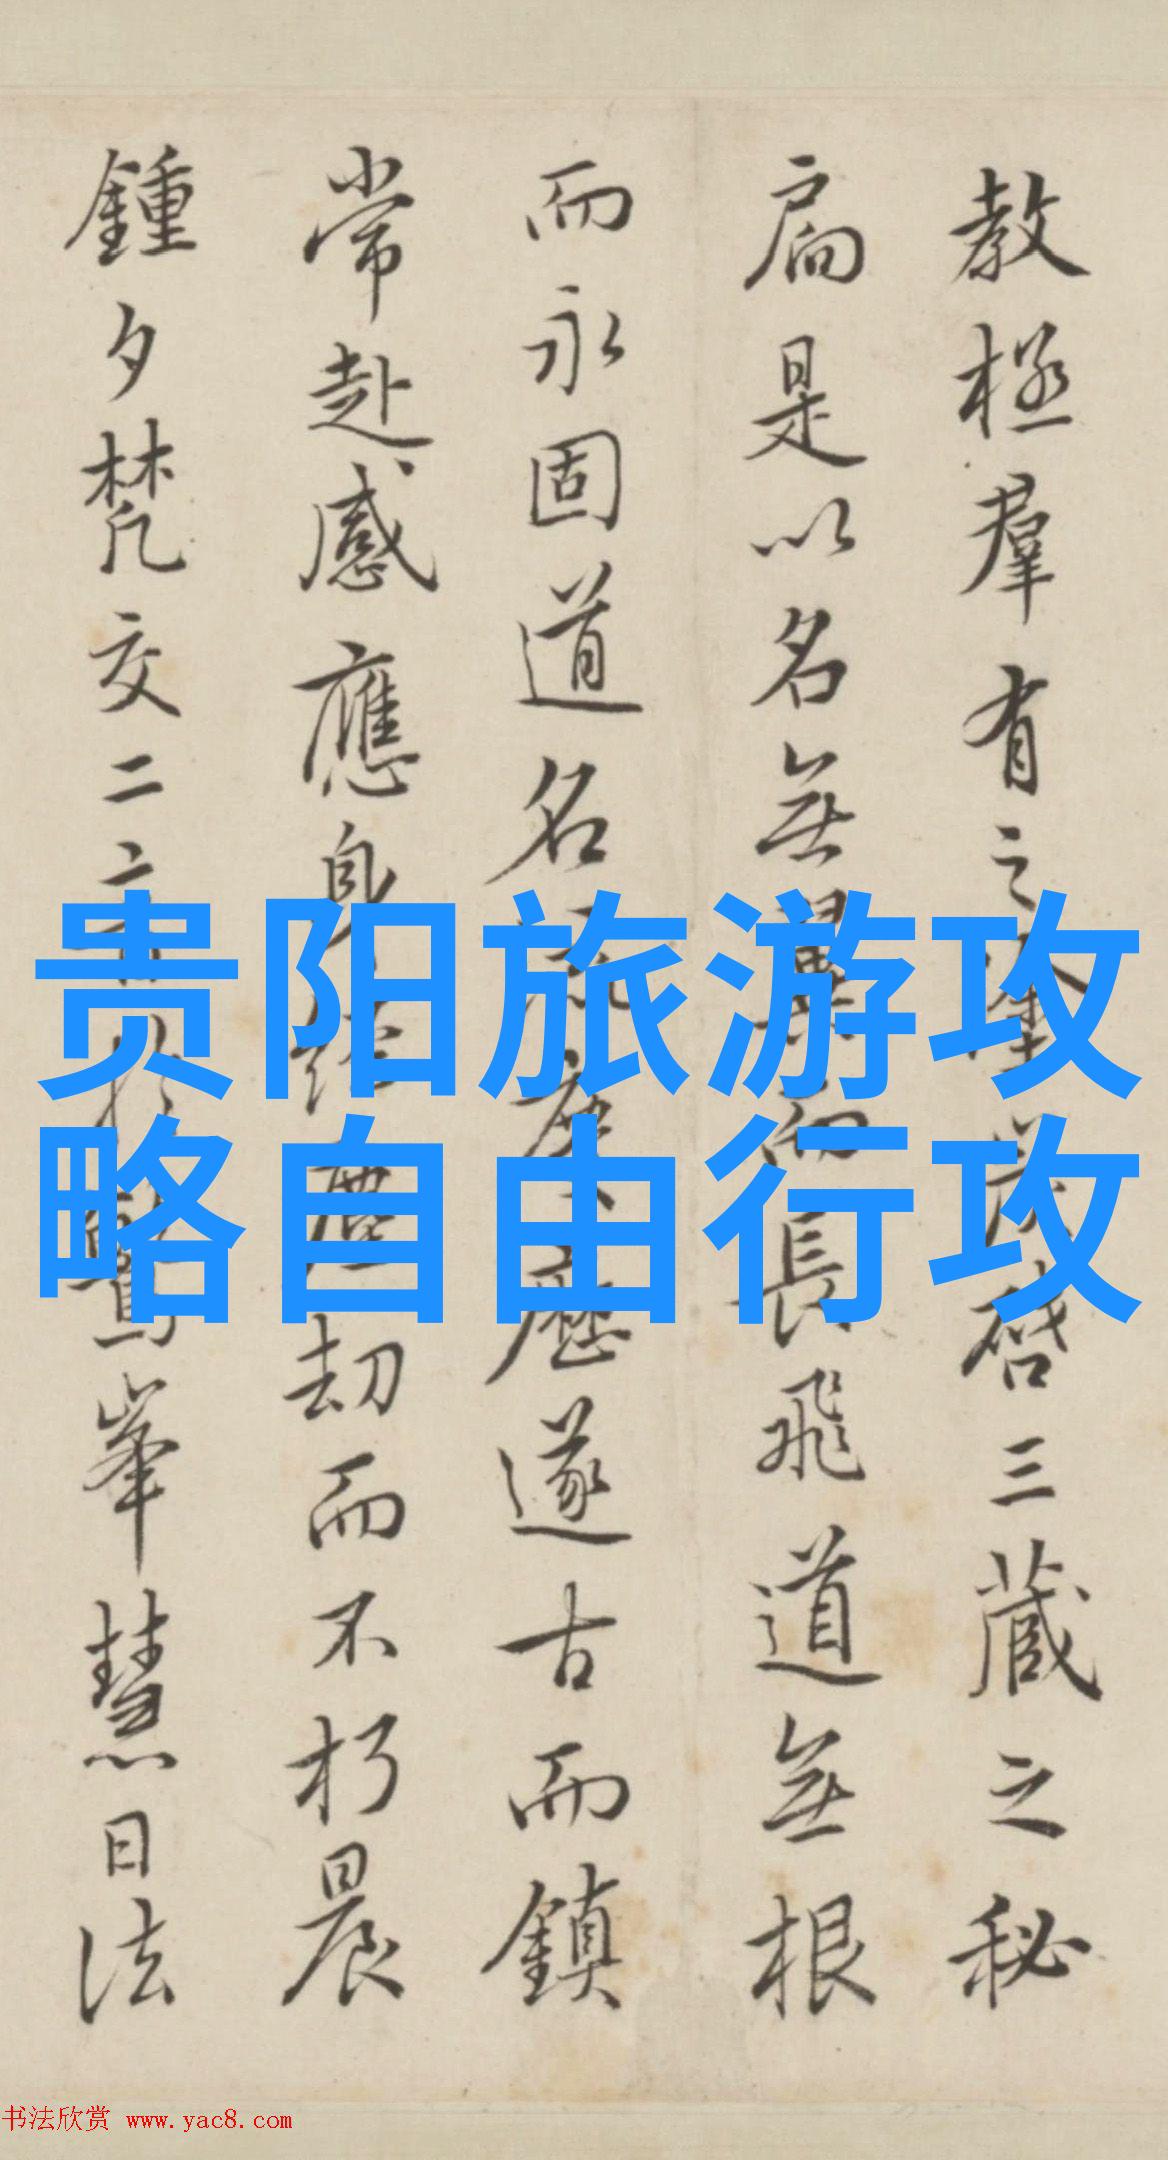 教極羣有之塗炭啓三藏之秘
扃是以名無翼而長飛道無根
而永固道名流慶歷遂古而鎮
常赴感應身經塵劫而不朽晨
鍾夕梵交二音於鷲峯慧日法
贵阳旅游攻
略自由行攻
书法欣赏 www.yac8.com